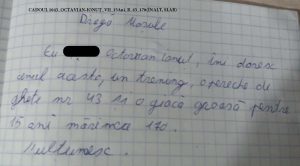 CADOUL 1043, OCTAVIAN-IONUT_VII_15Ani_B_43_170(INALT, SLAB)
Dragă Moșule
Eu Octavian Ionuț, îmi doresc
anul acesta, un trening, o pereche de
ghete nr 43 și o geacă groasă pentru
15 ani mărimea 170.
Mulțumesc.